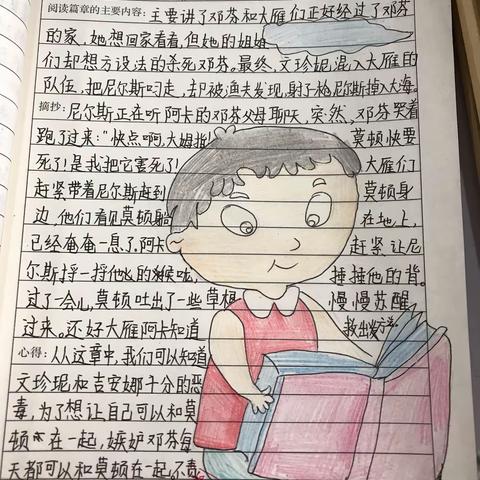 阅读篇章的主要内容:主要讲了邓芬和大雁们正好经过了邓芬
的家,她想回家看看,但她的姐姐
们却想方设法的杀死邓芬。最终,文珍妮,混入大雁的
队伍,把尼尔斯叼走,却被渔夫发现,射下枪尼尔斯掉入大海。
摘抄:尼尔斯正在听阿卡的邓芬父母聊天,突然,邓芬哭着
跑了过来:“快点啊,大姆指! 莫顿快要
死了!是我把它害死了! 大雁们
赶紧带着尼尔斯赶到 莫顿身
边,他们看见莫顿躺 在地上,
已经奄奄一息了,阿卡 赶紧让尼
尔斯捋一捋他的喉咙, 捶捶他的背。
过了一会儿,莫顿吐出了一些草根 慢慢苏醒
过来。还好大雁阿卡知道 救出方法。
心得:从这章中,我们可以知道
文珍妮和吉安娜十分的恶
毒,为了想让自己可以和莫
顿在一起,嫉妒邓芬每
天都可以和莫顿在一起,不毒